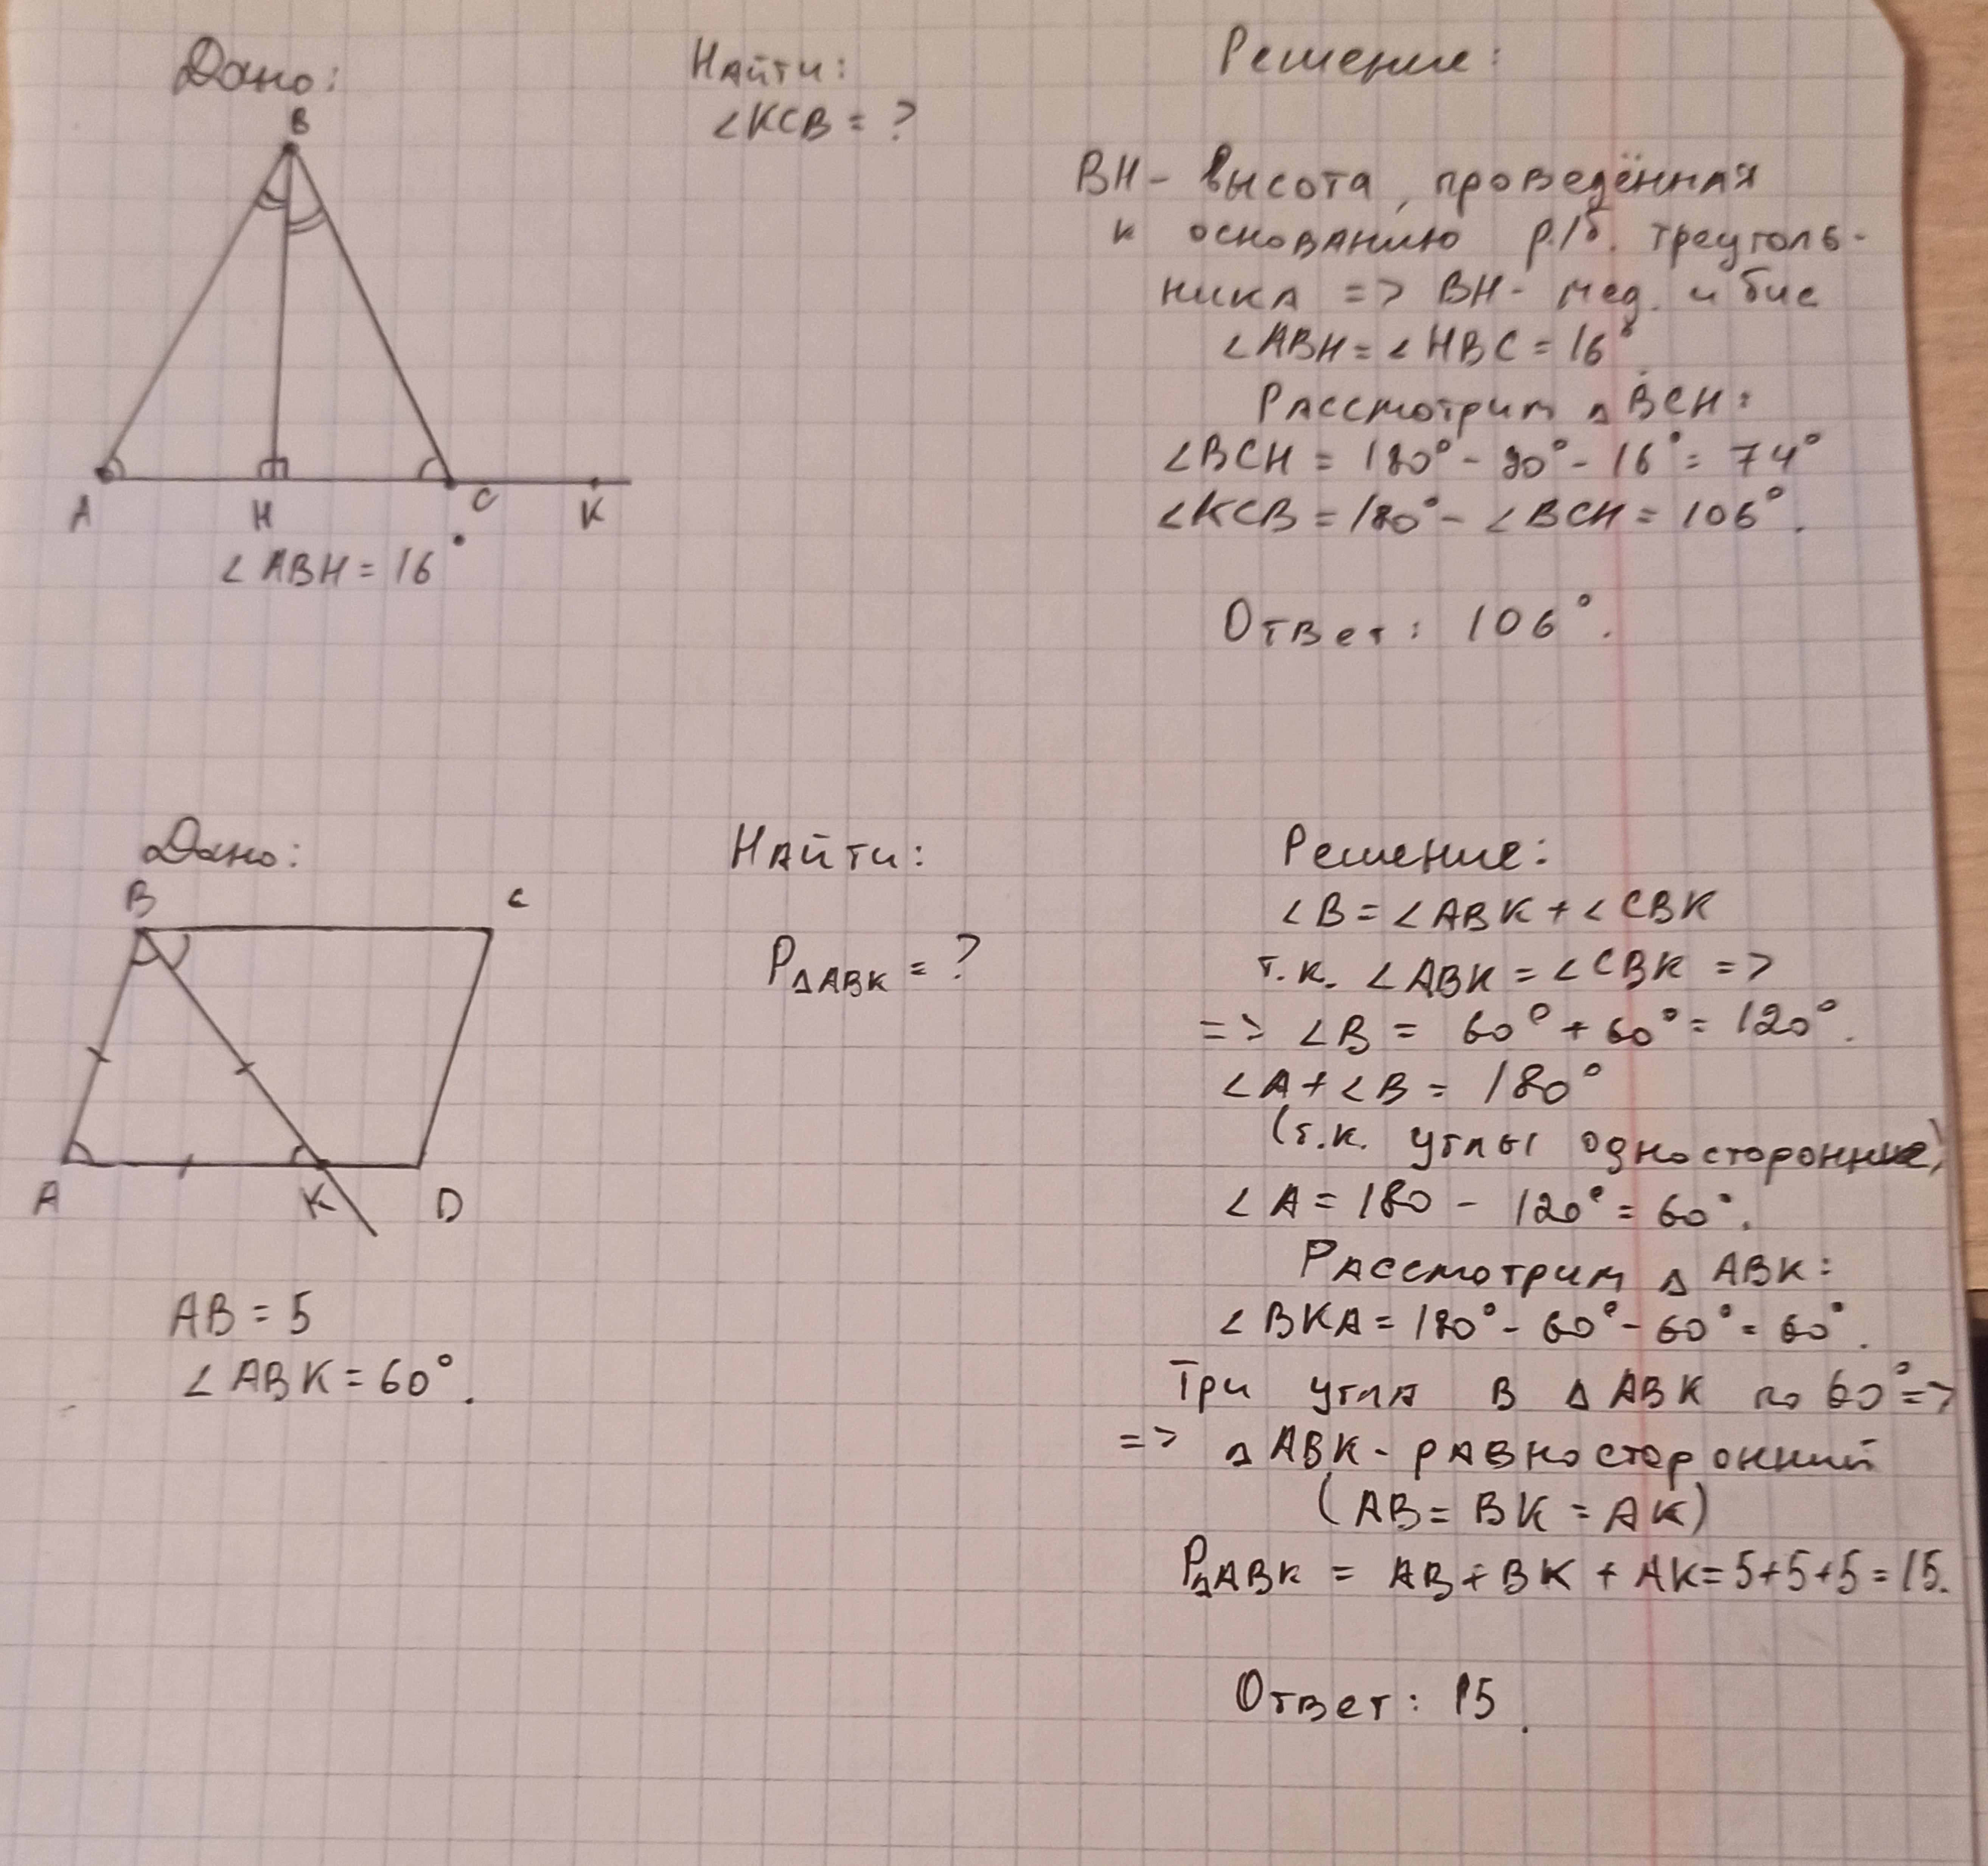 Дано:
B
A
H
C
K
∠ABH = 16°
Найти:
∠KCB = ?
Решение:
BH - высота, проведённая
к основанию р/б. треуголь-
ника => BH - мед. и бис
∠ABH = ∠HBC = 16°
Рассмотрим △BCH:
∠BCH = 180° - 90° - 16° = 74°
∠KCB = 180° - ∠BCH = 106°.
Ответ: 106°.
Дано:
B
C
A
K
D
AB = 5
∠ABK = 60°.
Найти:
P△ABK = ?
Решение:
∠B = ∠ABK + ∠CBK
т.к. ∠ABK = ∠CBK =>
=> ∠B = 60° + 60° = 120°.
∠A + ∠B = 180°
(т.к. углы односторонние)
∠A = 180 - 120° = 60°.
Рассмотрим △ABK:
∠BKA = 180° - 60° - 60° = 60°.
Три угла в △ABK по 60° =>
=> △ABK - равносторонний
(AB = BK = AK)
P△ABK = AB + BK + AK = 5+5+5 = 15.
Ответ: 15.